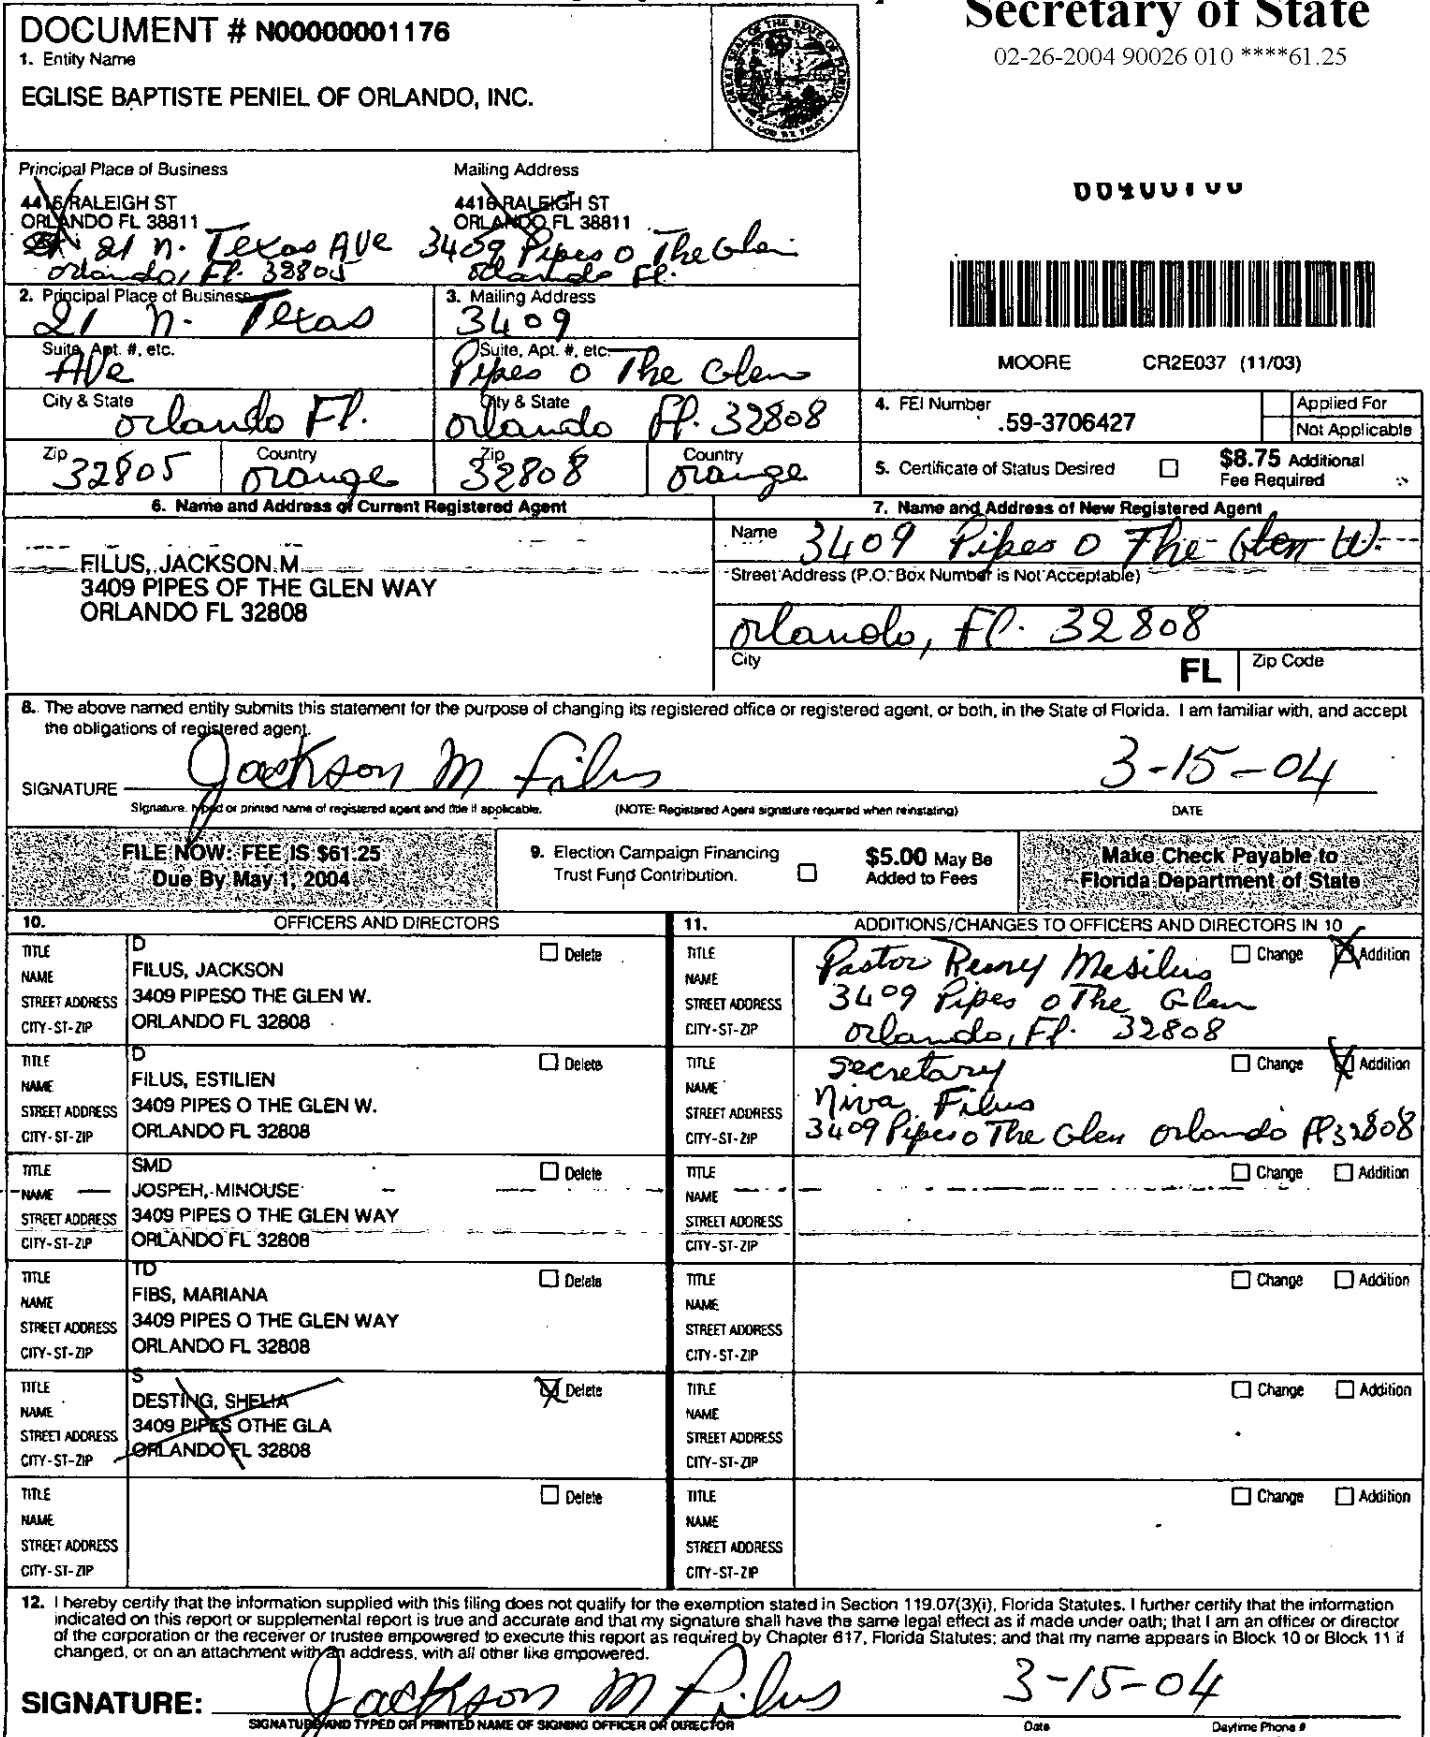 Secretary of State
02-26-2004 90026 010 ****61.25
DOCUMENT # N00000001176
1. Entity Name
EGLISE BAPTISTE PENIEL OF ORLANDO, INC.
GREAT SEAL OF THE STATE OF FLORIDA
IN GOD WE TRUST
Principal Place of Business
4416 RALEIGH ST
ORLANDO FL 38811
21 N. Texas AVe
Orlando, Fl. 32805
Mailing Address
4416 RALEIGH ST
ORLANDO FL 38811
3409 Pipes o The Glen
Orlando Fl.
MOORE CR2E037 (11/03)
2. Principal Place of Business
21 N. Texas
3. Mailing Address
3409
Suite, Apt. #, etc.
AVe
Suite, Apt. #, etc.
Pipes o The Glen
City & State
Orlando Fl.
City & State
Orlando Fl. 32808
Zip
32805
Country
Orange
Zip
32808
Country
Orange
4. FEI Number
59-3706427
Applied For
Not Applicable
5. Certificate of Status Desired
$8.75 Additional
Fee Required
6. Name and Address of Current Registered Agent
FILUS, JACKSON M
3409 PIPES OF THE GLEN WAY
ORLANDO FL 32808
7. Name and Address of New Registered Agent
Name 3409 Pipes O The Glen W.
Street Address (P.O. Box Number is Not Acceptable)
Orlando, Fl. 32808
City FL Zip Code
8. The above named entity submits this statement for the purpose of changing its registered office or registered agent, or both, in the State of Florida. I am familiar with, and accept
the obligations of registered agent.
SIGNATURE Jackson M Filus 3-15-04
Signature, typed or printed name of registered agent and title if applicable. (NOTE: Registered Agent signature required when reinstating) DATE
FILE NOW: FEE IS $61.25
Due By May 1, 2004
9. Election Campaign Financing
Trust Fund Contribution.
$5.00 May Be
Added to Fees
Make Check Payable to
Florida Department of State
10. OFFICERS AND DIRECTORS
TITLE D Delete
NAME FILUS, JACKSON
STREET ADDRESS 3409 PIPESO THE GLEN W.
CITY-ST-ZIP ORLANDO FL 32808
TITLE D Delete
NAME FILUS, ESTILIEN
STREET ADDRESS 3409 PIPES O THE GLEN W.
CITY-ST-ZIP ORLANDO FL 32808
TITLE SMD Delete
NAME JOSPEH, MINOUSE
STREET ADDRESS 3409 PIPES O THE GLEN WAY
CITY-ST-ZIP ORLANDO FL 32808
TITLE TD Delete
NAME FIBS, MARIANA
STREET ADDRESS 3409 PIPES O THE GLEN WAY
CITY-ST-ZIP ORLANDO FL 32808
TITLE S Delete
NAME DESTING, SHELIA
STREET ADDRESS 3409 PIPES OTHE GLA
CITY-ST-ZIP ORLANDO FL 32808
TITLE Delete
NAME
STREET ADDRESS
CITY-ST-ZIP
11. ADDITIONS/CHANGES TO OFFICERS AND DIRECTORS IN 10
TITLE Pastor Remy Mesilus Change Addition
NAME
STREET ADDRESS 3409 Pipes o The Glen
CITY-ST-ZIP Orlando, Fl. 32808
TITLE Secretary Change Addition
NAME Niva Filus
STREET ADDRESS 3409 Pipes o The Glen Orlando Fl 32808
CITY-ST-ZIP
TITLE Change Addition
NAME
STREET ADDRESS
CITY-ST-ZIP
TITLE Change Addition
NAME
STREET ADDRESS
CITY-ST-ZIP
TITLE Change Addition
NAME
STREET ADDRESS
CITY-ST-ZIP
TITLE Change Addition
NAME
STREET ADDRESS
CITY-ST-ZIP
12. I hereby certify that the information supplied with this filing does not qualify for the exemption stated in Section 119.07(3)(i), Florida Statutes. I further certify that the information
indicated on this report or supplemental report is true and accurate and that my signature shall have the same legal effect as if made under oath; that I am an officer or director
of the corporation or the receiver or trustee empowered to execute this report as required by Chapter 617, Florida Statutes; and that my name appears in Block 10 or Block 11 if
changed, or on an attachment with an address, with all other like empowered.
SIGNATURE: Jackson M Filus 3-15-04
SIGNATURE AND TYPED OR PRINTED NAME OF SIGNING OFFICER OR DIRECTOR Date Daytime Phone #